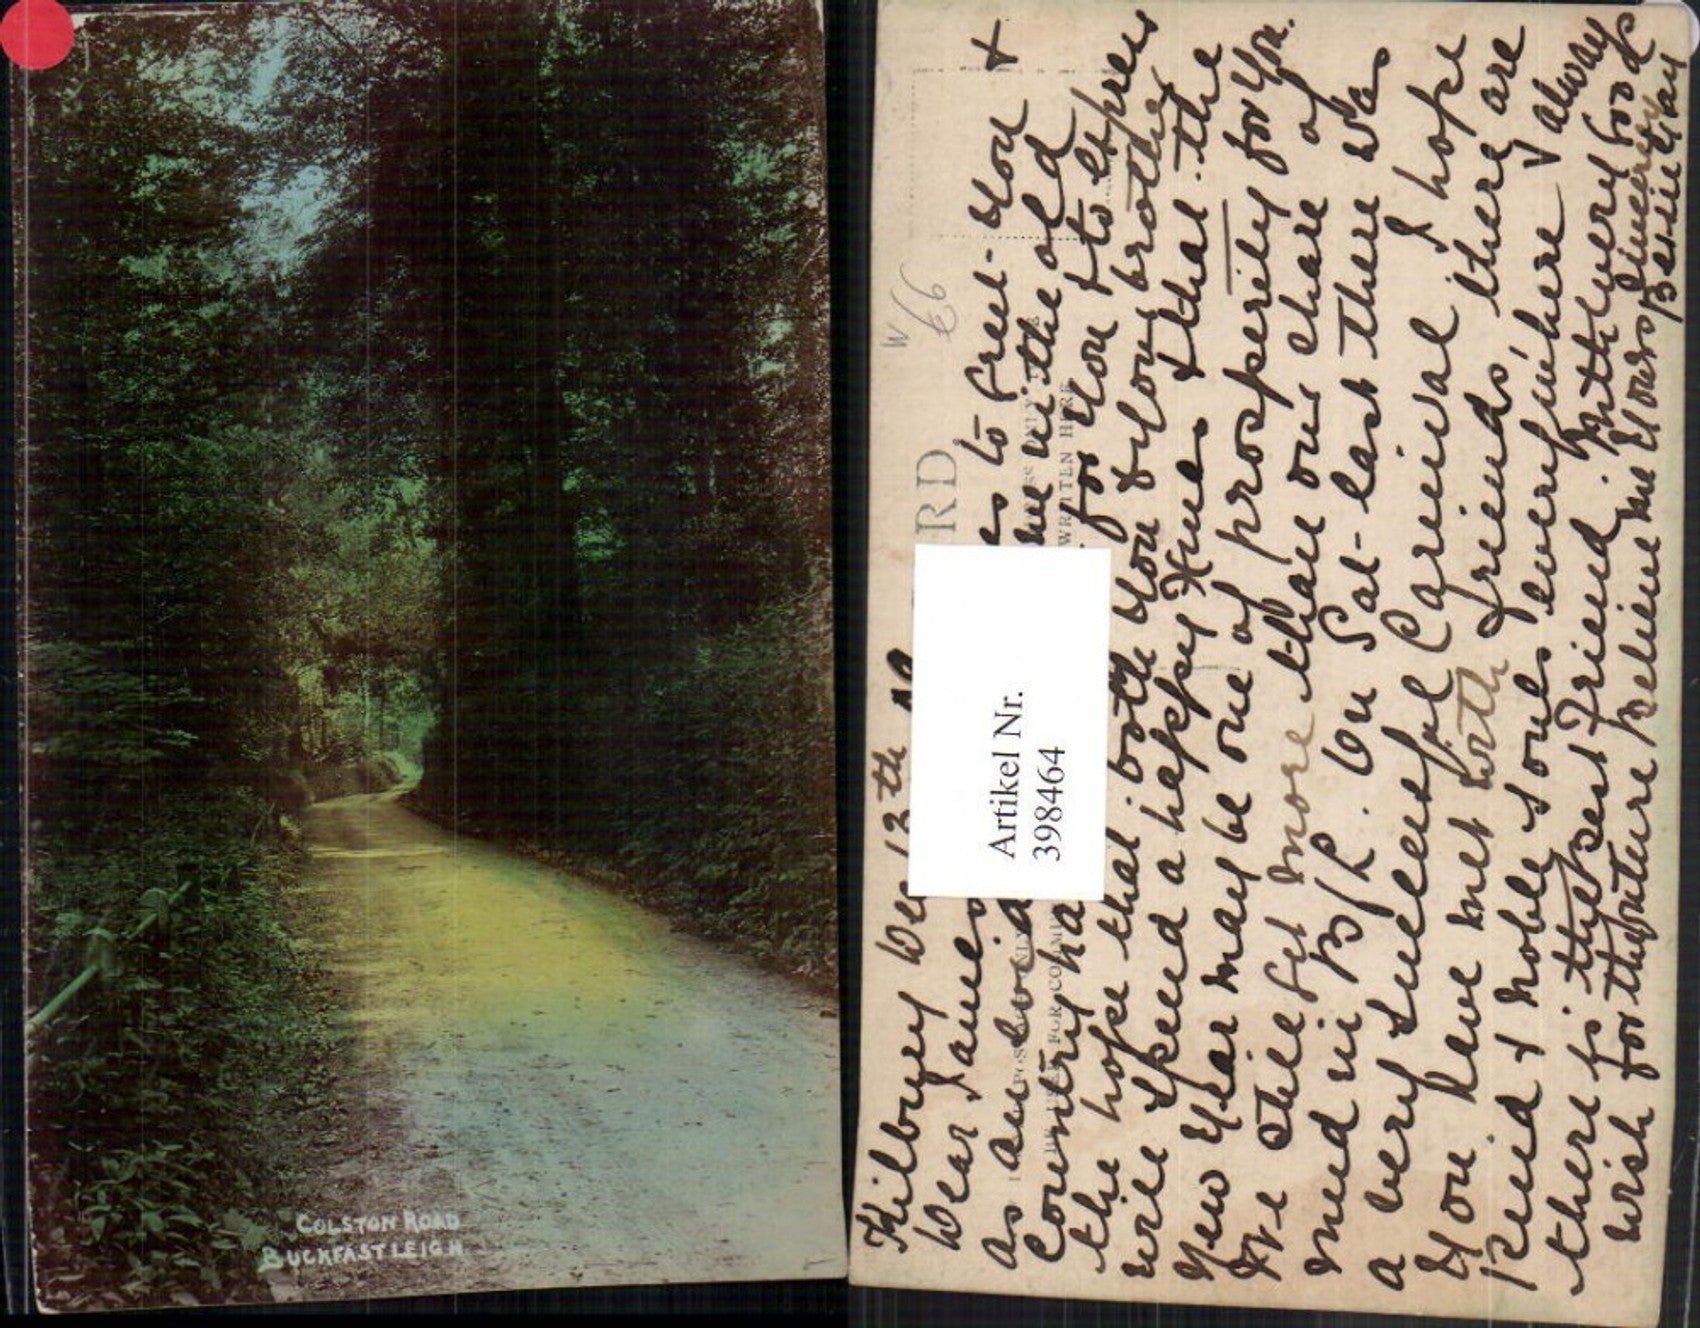 COLSTON ROAD
BUCKFASTLEIGH
W
66
RD
WRITTEN HERE
Artikel Nr.
398464
Kilbury Dec 12th
Dear James to
you &
as
me in the old
Country for you & to express
the hope that both you & your brother
will spend a happy Xmas & that the
New Year may be one of prosperity for you.
We still get more than our share of
mud in B/L. On Sat- last there was
a very successful Carnival I hope
you have met with friends, there are
kind & noble souls everywhere & always
there is the best Friend. With every good
wish for the future believe me yours sincerely
Bessie